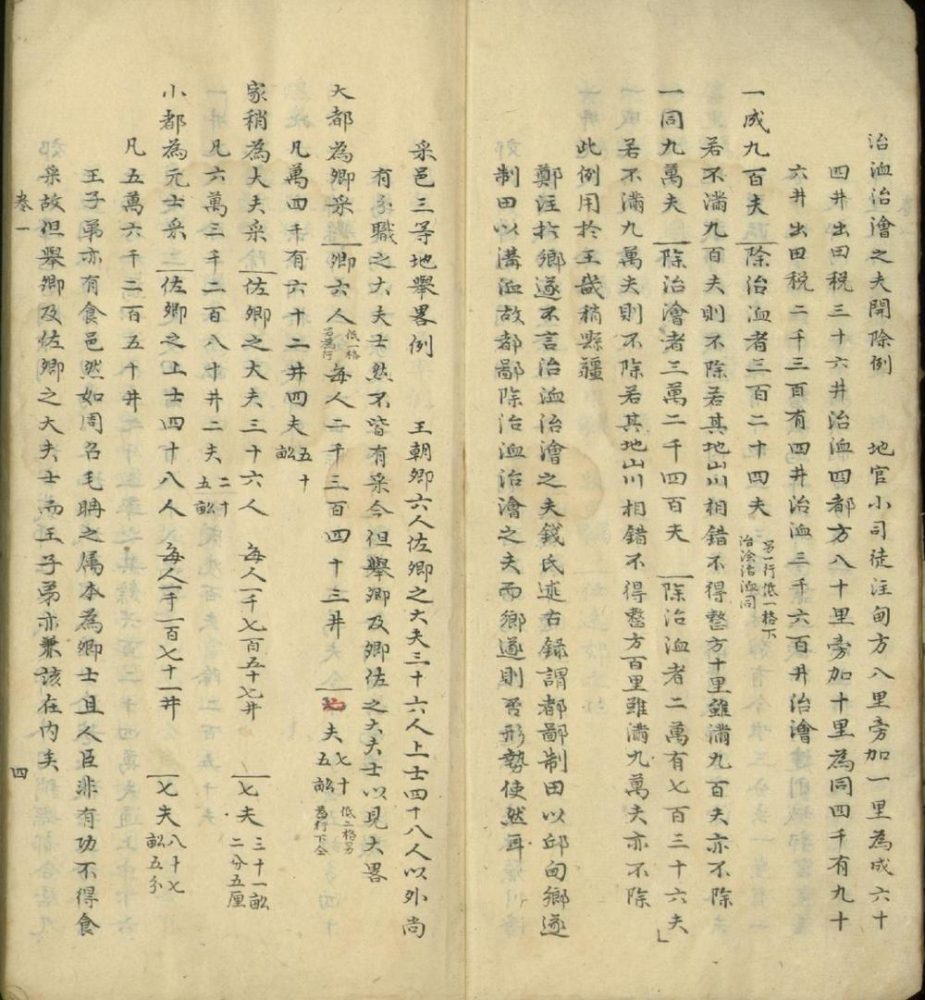 治洫治澮之夫開除例　地官小司徒注甸方八里旁加一里為成六十
四井出田税三十六井治洫四都方八十里旁加十里為同四千有九十
六井出田税二千三百有四井治洫三千六百井治澮
一成九百夫　除治洫者三百二十四夫　另一行低一格下治澮治洫同
若不滿九百夫則不除若其地山川相錯不得整方十里雖滿九百夫亦不除
一同九萬夫　除治澮者三萬二千四百夫　除治洫者二萬有七百三十六夫」
若不滿九萬夫則不除若其地山川相錯不得整方百里雖滿九萬夫亦不除
此例用於王畿稍縣疆
鄭注於鄉遂不言治洫治澮之夫錢氏述古錄謂都鄙制田以邱甸鄉遂
制田以溝洫故都鄙除治洫治澮之夫而鄉遂則否形勢使然耳
采邑三等地舉畧例　王朝卿六人佐卿之大夫三十六人上士四十八人以外尚
有分職之大夫士然不皆有采今但舉卿及卿佐之大夫士以見大畧
大都為卿采　卿六人　低一格另為行　每人二千三百四十三井　夫七十五畝　低二格另為行下仝
凡萬四千有六十二井四夫五十畝
家稍為大夫采　佐卿之大夫三十六人　每人一千七百五十七井　七夫三十一畝二分五厘
凡六萬三千二百八十井二夫二十五畝
小都為元士采　佐卿之上士四十八人　每人一千一百七十一井　七夫八十七畝五分
凡五萬六千二百五十井
王子弟亦有食邑然如周召毛聃之屬本為卿士且人臣非有功不得食
采故但舉卿及佐卿之大夫士而王子弟亦兼該在内矣
卷一
四